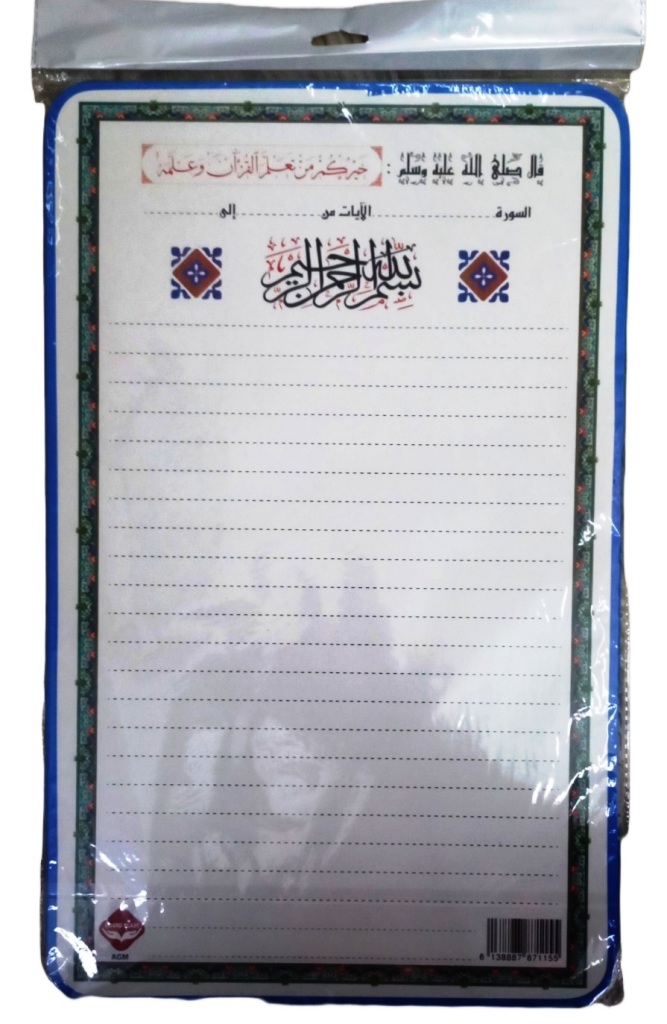 قال صلى الله عليه وسلم : خيركم من تعلم القرآن وعلمه
السورة.......................الآيات من.......................إلى.......................
بسم الله الرحمن الرحيم
AGM
6 138887 871155